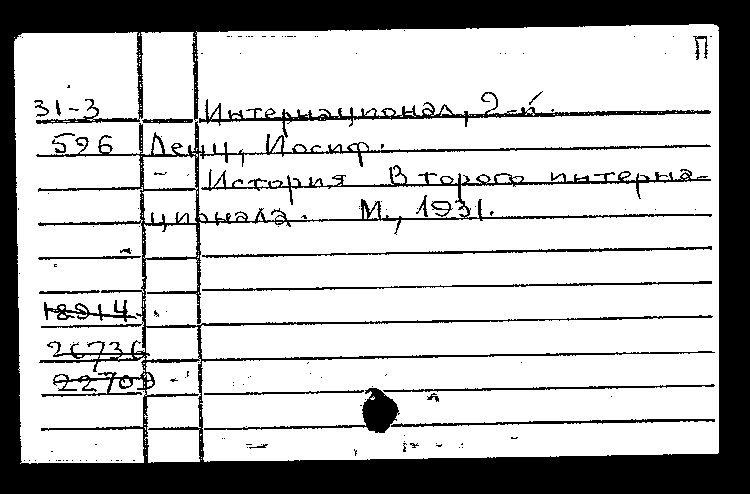 П
31-3 Интернационал, 2-й.
596 Ленц, Иосиф.
- История Второго интерна-
ционала. М., 1931.
18914
26736
22709